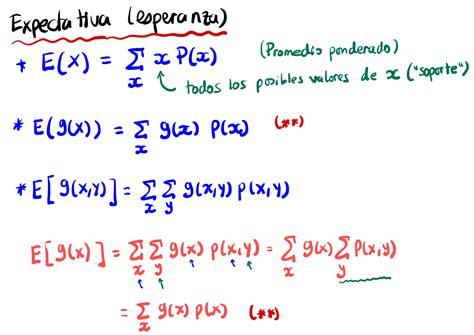 Expectativa (esperanza)
* E(X) = Σ_x x P(x) (Promedio ponderado)
todos los posibles valores de x ("soporte")
* E(g(x)) = Σ_x g(x) P(x) (**)
* E[g(x,y)] = Σ_x Σ_y g(x,y) p(x,y)
E[g(x)] = Σ_x Σ_y g(x) p(x,y) = Σ_x g(x) Σ_y p(x,y)
= Σ_x g(x) p(x) (**)